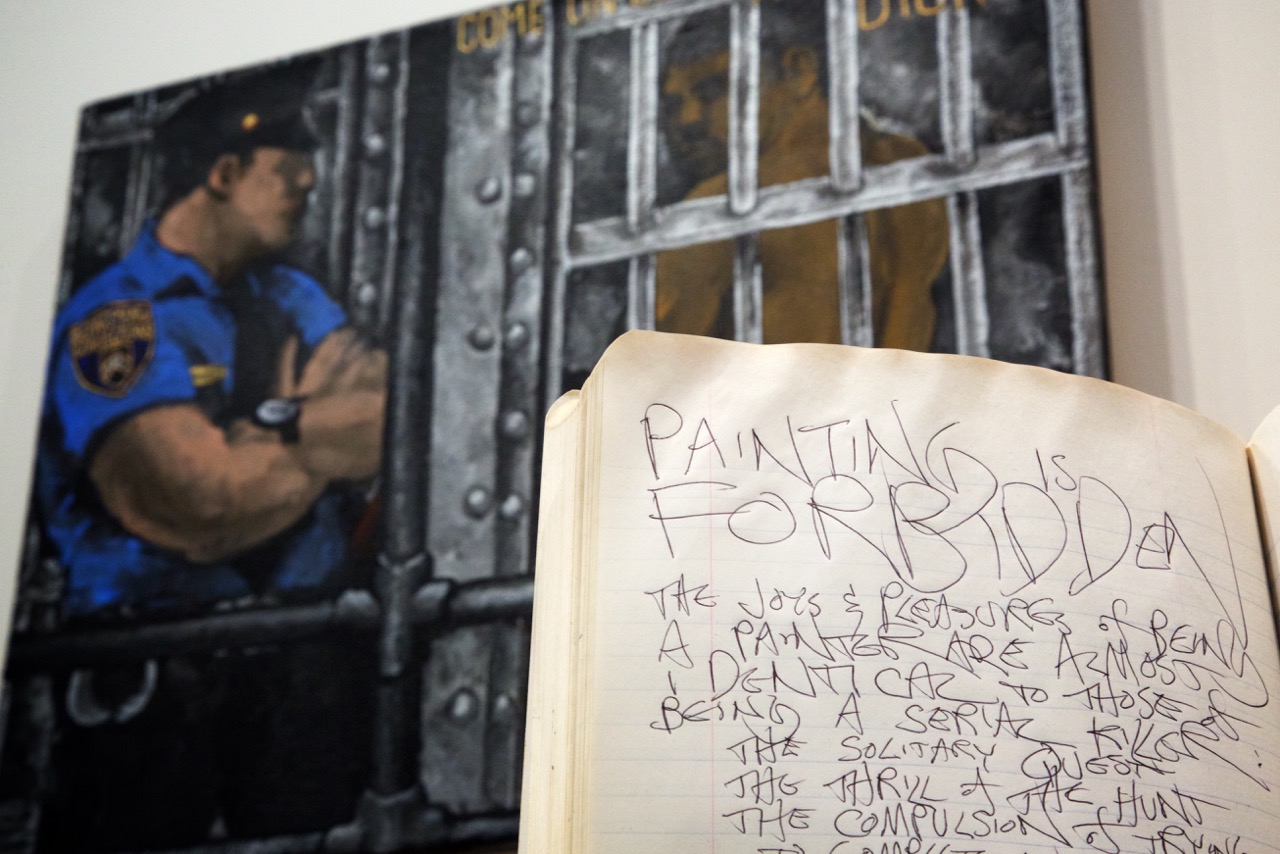 COME ON
PAINTING IS
FORBIDDEN
THE JOYS & PLEASURES of BEING
A PAINTER ARE ALMOST
IDENTICAL TO THOSE of
BEING A SERIAL KILLER:
THE SOLITARY QUEST
THE THRILL of THE HUNT
THE COMPULSION of TRYING
TO COMPLETE